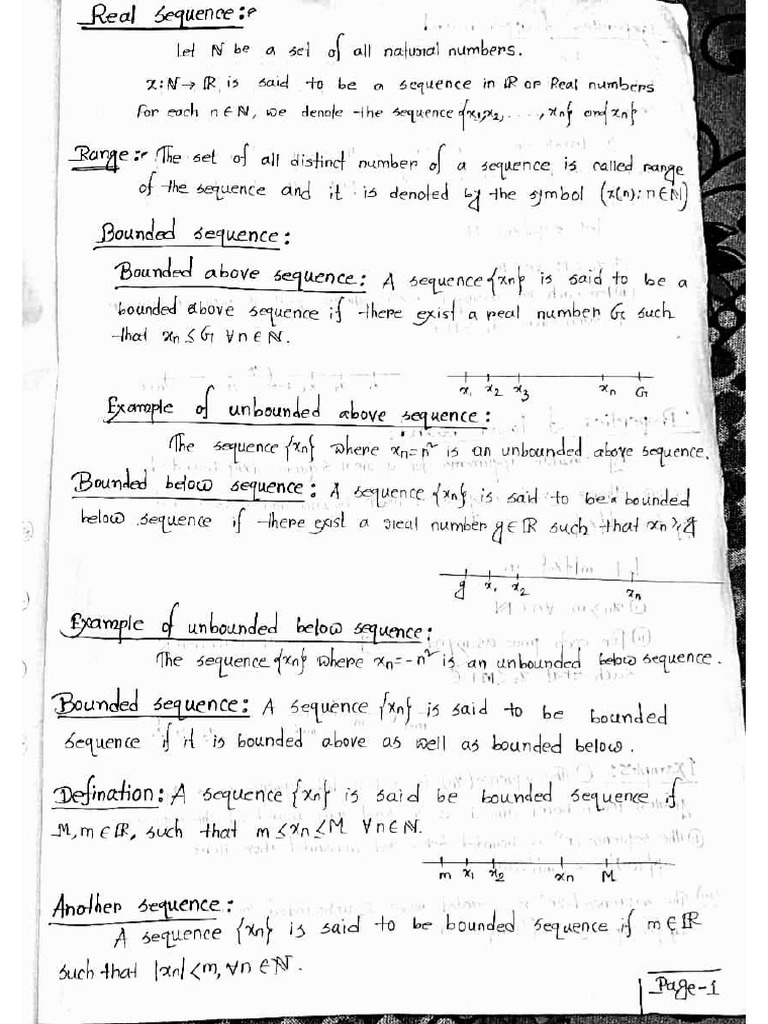 Real Sequence:-
Let N be a set of all natural numbers.
x: N → ℝ is said to be a sequence in ℝ or Real numbers
For each n ∈ N, we denote the sequence {x₁,x₂, ....., xn} or {xn}.
Range:- The set of all distinct number of a sequence is called range
of the sequence and it is denoted by the symbol (x(n): n ∈ N)
Bounded sequence:
Bounded above sequence: A sequence {xn} is said to be a
bounded above sequence if there exist a real number G such
that xn ≤ G ∀ n ∈ N.
x₁ x₂ x₃ xn G
Example of unbounded above sequence:
The sequence {xn} where xn = n² is an unbounded above sequence.
Bounded below sequence: A sequence {xn} is said to be a bounded
below sequence if there exist a real number g ∈ ℝ such that xn ≥ g
g x₁ x₂ xn
Example of unbounded below sequence:
The sequence {xn} where xn = -n² is an unbounded below sequence.
Bounded sequence: A sequence {xn} is said to be bounded
sequence if it is bounded above as well as bounded below.
Defination: A sequence {xn} is said be bounded sequence if
M, m ∈ ℝ, such that m ≤ xn ≤ M ∀ n ∈ N.
m x₁ x₂ xn M
Another sequence:
A sequence {xn} is said to be bounded sequence if m ∈ ℝ
such that |xn| < m, ∀ n ∈ N.
Page-1